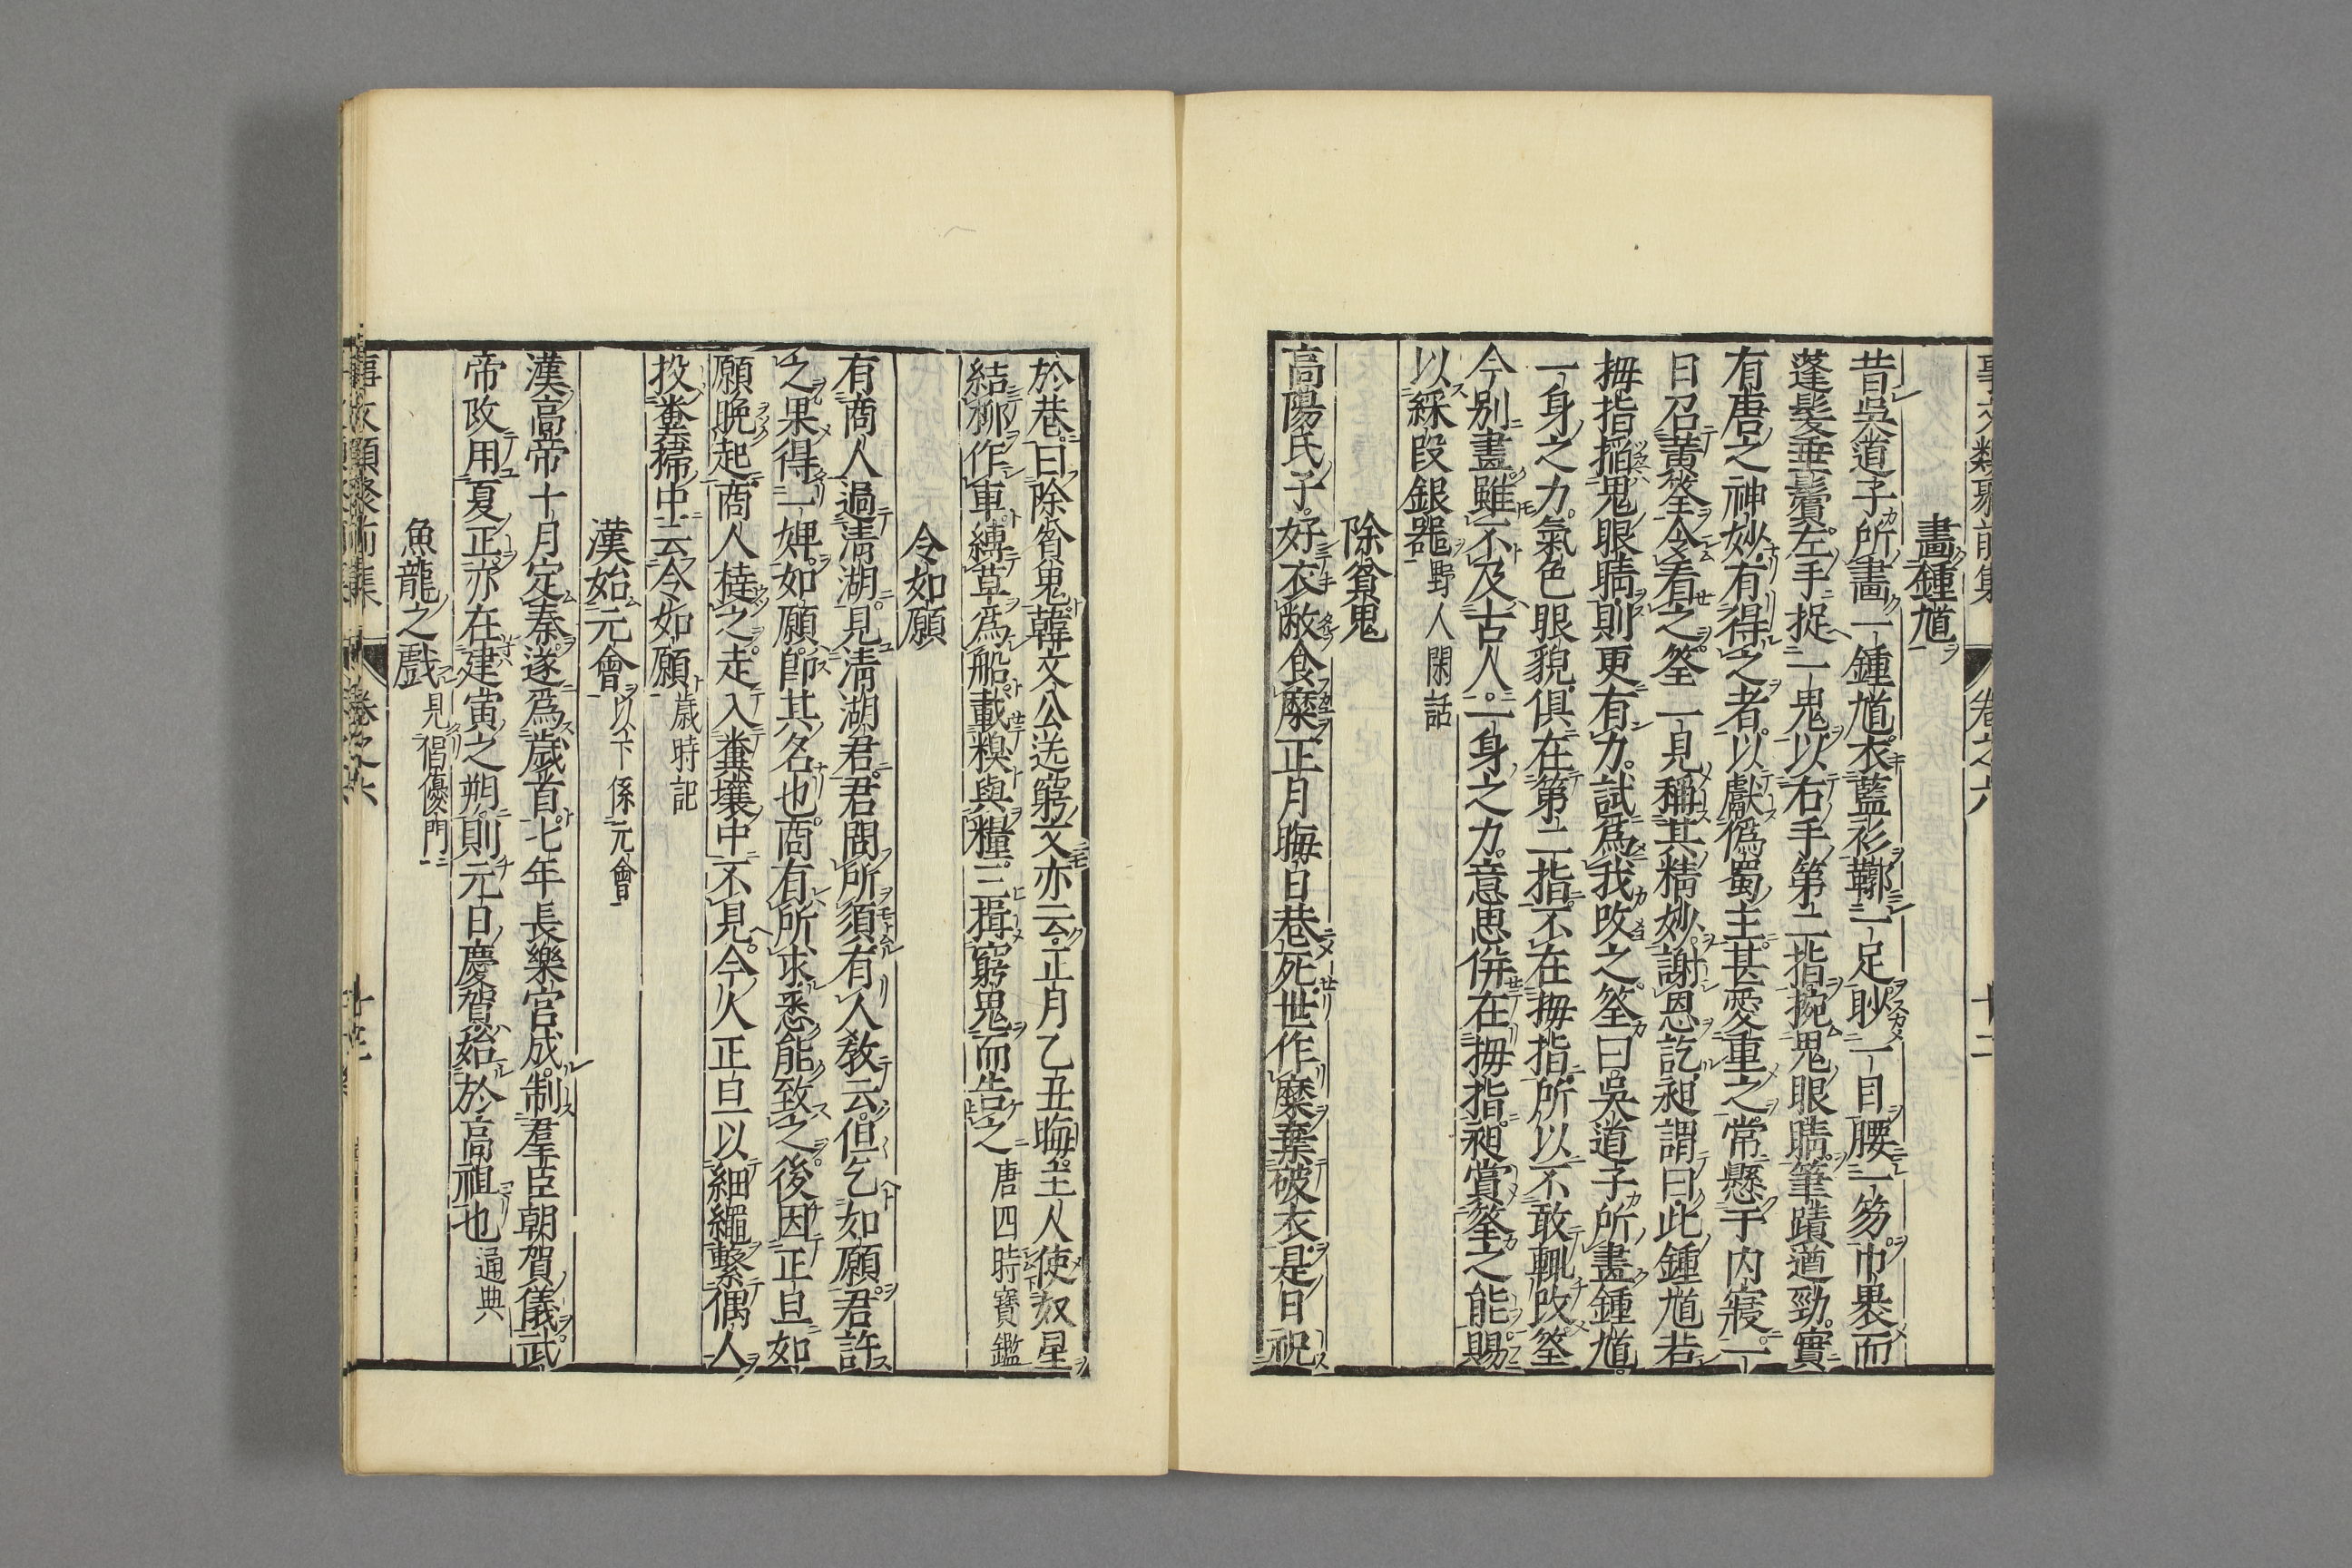 事文類聚前集 卷之六
畫鍾馗
昔吳道子所畫一鍾馗衣藍衫鞹一足眇一目腰一笏巾裹而
蓬髮垂鬢左手捉一鬼以右手第二指捥鬼眼睛筆蹟遒勁實
有唐之神妙有得之者以獻僞蜀主甚愛重之常懸于内寢一
日召黃筌令看之筌一見稱其精妙謝恩訖昶謂曰此鍾馗若
拇指搯鬼眼睛則更有力試爲我改之筌曰吳道子所畫鍾馗
一身之力氣色眼貌俱在第二指不在拇指所以不敢輒改筌
今別畫雖不及古人一身之力意思併在拇指昶賞筌之能賜
以綵段銀器野人閑話
除貧鬼
高陽氏子好衣敝食糜正月晦日巷死世作糜棄破衣是日祝
於巷曰除貧鬼韓文公送窮文亦云正月乙丑晦主人使奴星
結柳作車縛草爲船載糗與糧三揖窮鬼而告之唐四時寶鑑
令如願
有商人過淸湖見淸湖君君問所須有人敎云但乞如願君許
之果得一婢如願卽其名也商有所求悉能致之後因正旦如
願晚起商人撻之走入糞壤中不見今人正旦以細繩繫偶人
投糞掃中云令如願歲時記
漢始元會以下係元會
漢高帝十月定秦遂爲歲首七年長樂宮成制羣臣朝賀儀武
帝改用夏正亦在建寅之朔則元日慶賀始於高祖也通典
魚龍之戲見倡優門
事文類聚前集 卷之六